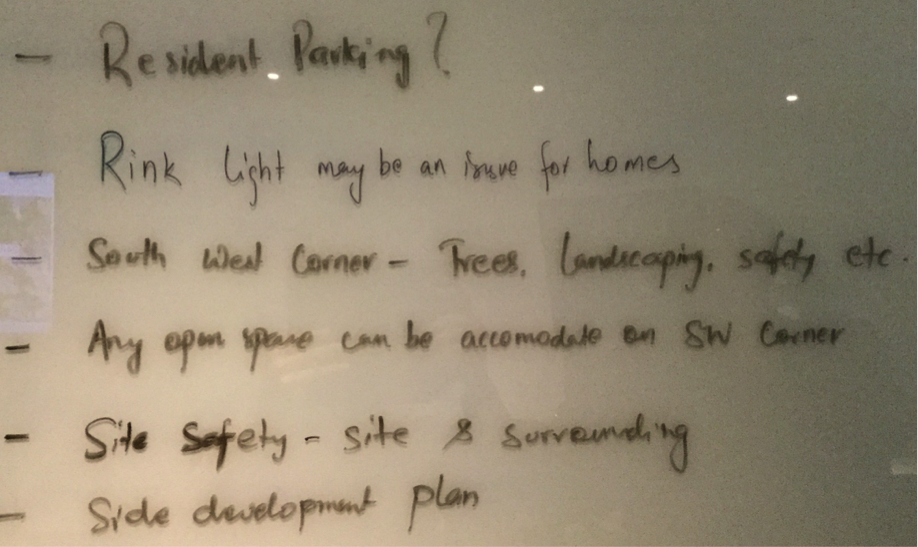 - Resident Parking?
- Rink light may be an issue for homes
- South West Corner - Trees, landscaping, safety etc.
- Any open space can be accomodate on SW Corner
- Site Safety - site & surrounding
- Side development plan